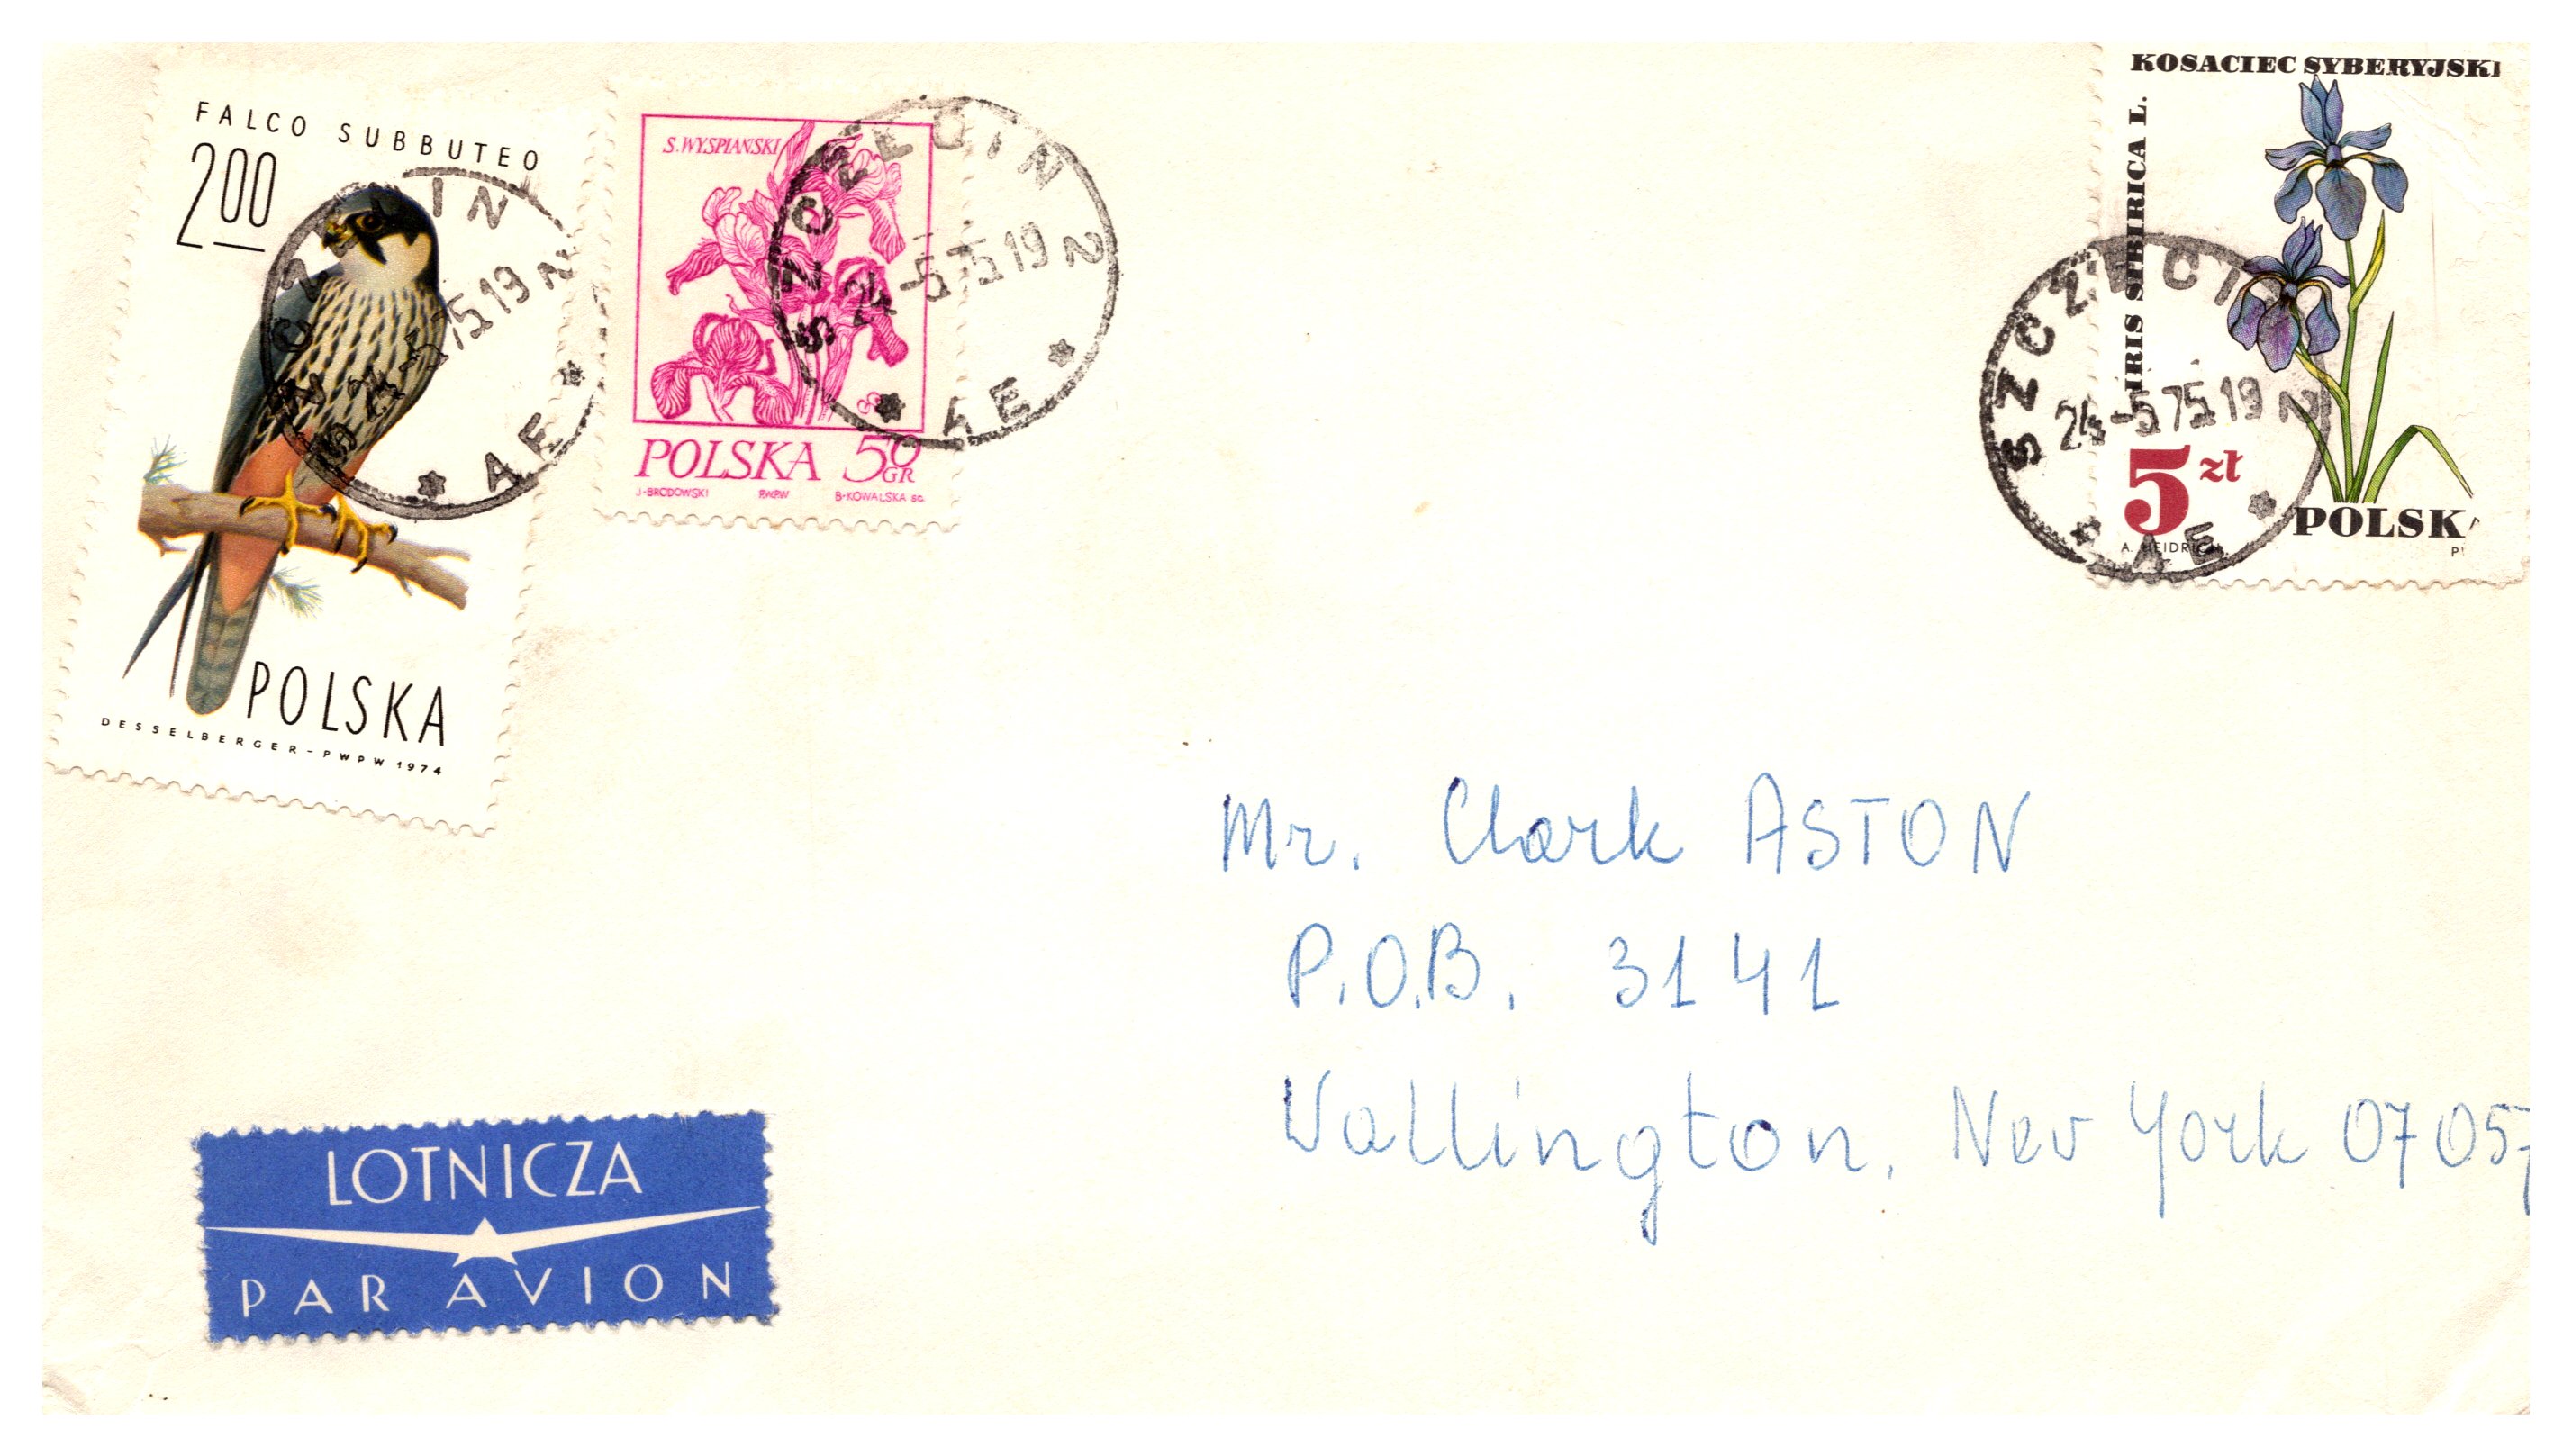 FALCO SUBBUTEO
2.00
POLSKA
DESSELBERGER-PWPW 1974
SZCZECIN
75 19
2
AE
S. WYSPIAŃSKI
POLSKA 50 GR
J-BRODOWSKI PWPW B-KOWALSKA sc.
SZCZECIN
24-5 75 19
2
AE
KOSACIEC SYBERYJSKI
IRIS SIBIRICA L.
5 zł
POLSKA
A. HEIDRICH
SZCZECIN
24-5 75 19
2
AE
Mr. Clark ASTON
P.O.B. 3141
Wallington, New York 07057
LOTNICZA
PAR AVION